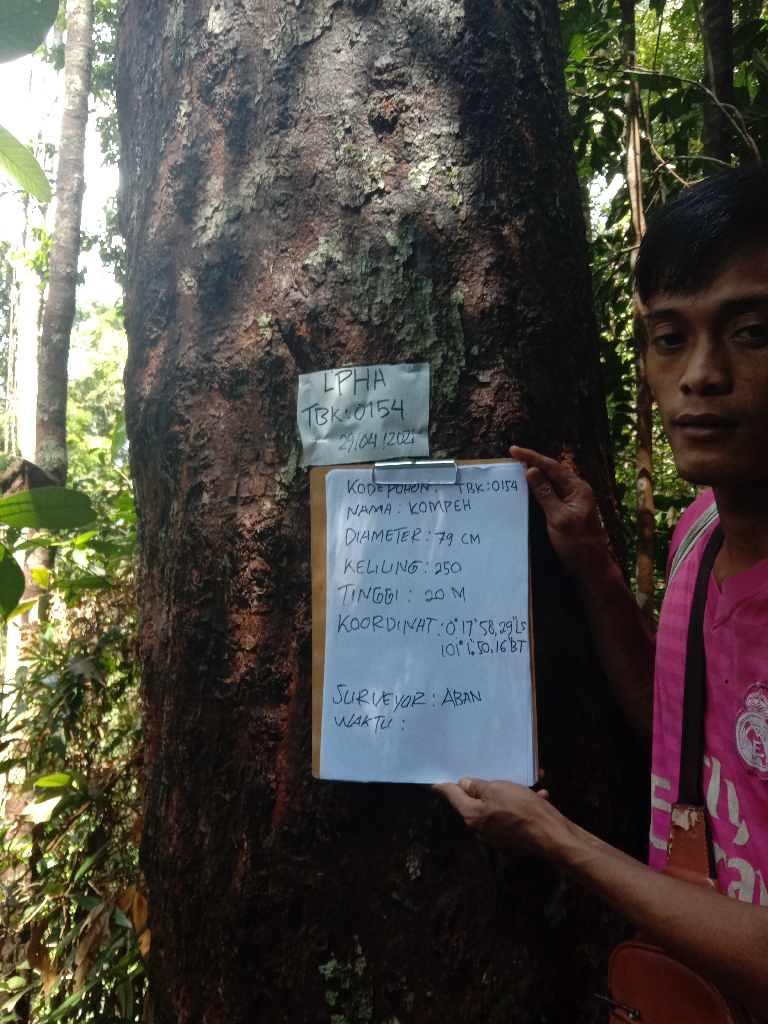 LPHA
TBK:0154
29/04/2021
KODE POHON: TBK:0154
NAMA: KOMPEH
DIAMETER: 79 CM
KELILING: 250
TINGGI: 20 M
KOORDINAT: 0° 17' 58,29" LS
101° 1' 50,16" BT
SURVEYOR: ABAN
WAKTU:
Fly